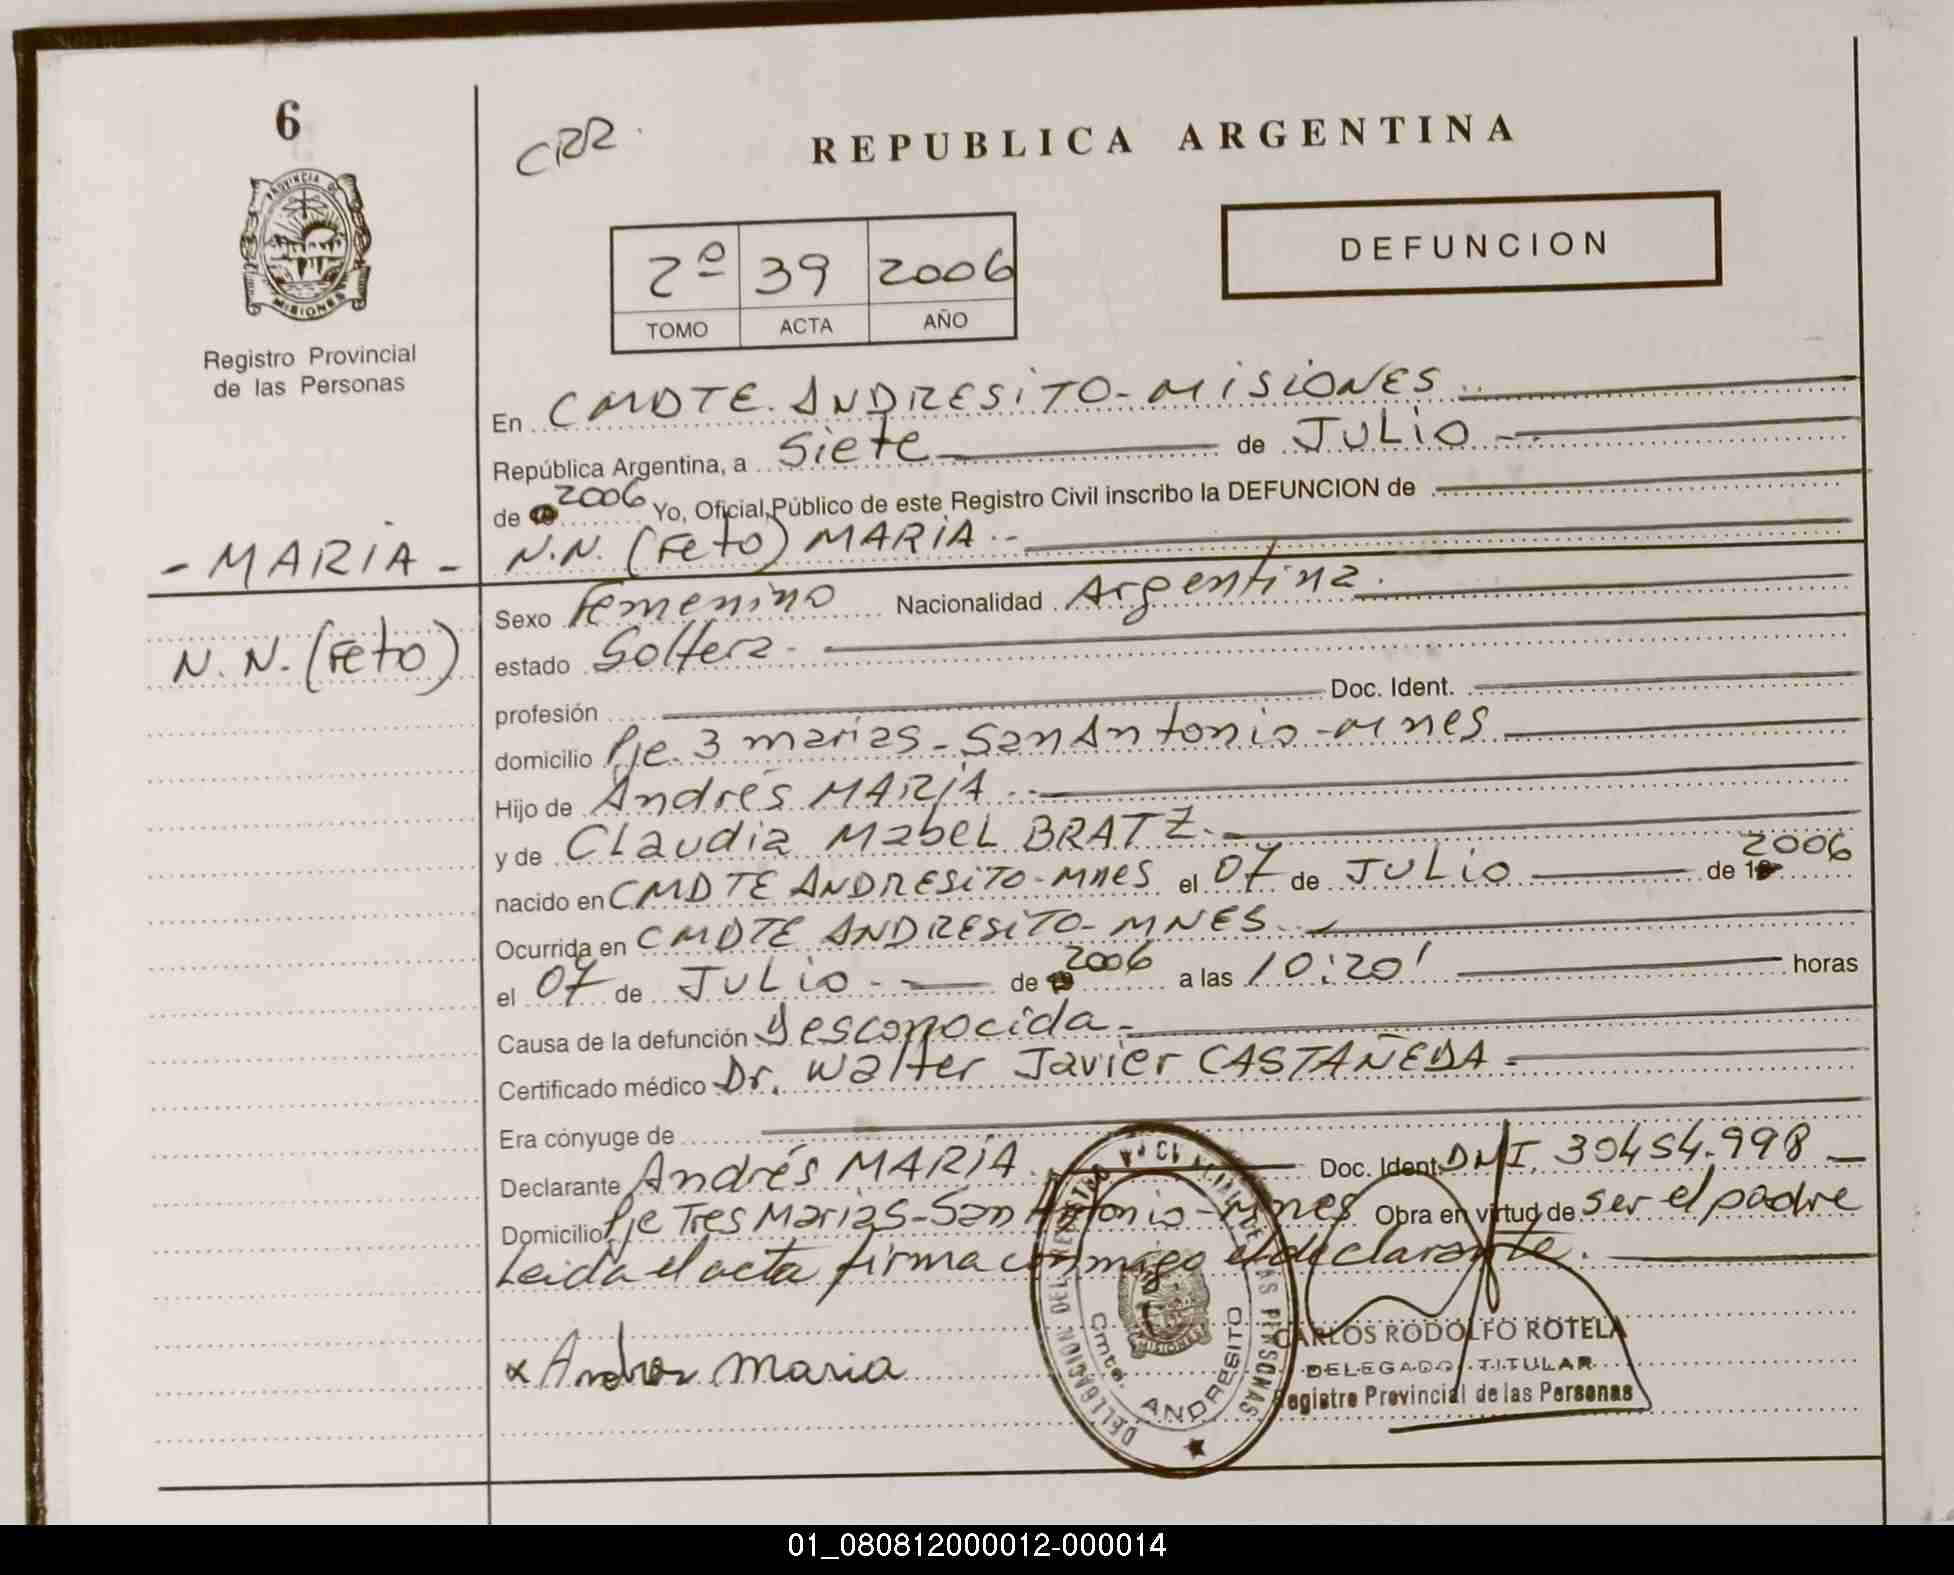 6
CRR.
REPUBLICA ARGENTINA
PROVINCIA DE
MISIONES
Registro Provincial
de las Personas
2º 39 2006
TOMO ACTA AÑO
DEFUNCION
En CMDTE. ANDRESITO-MISIONES
República Argentina, a Siete de JULIO
de 2006 Yo, Oficial Público de este Registro Civil inscribo la DEFUNCION de
- MARIA -
N.N. (Feto) MARIA
N.N. (Feto)
Sexo Femenino Nacionalidad Argentina.
estado Soltera.
profesión Doc. Ident.
domicilio Pje. 3 marias-San Antonio-Mnes
Hijo de Andrés MARIA
y de Claudia Mabel BRATZ.
nacido en CMDTE ANDRESITO-Mnes el 07 de JULIO de 2006
Ocurrida en CMDTE ANDRESITO-MNES
el 07 de JULIO de 2006 a las 10:20' horas
Causa de la defunción Desconocida
Certificado médico Dr. Walter Javier CASTAÑEDA
Era cónyuge de
Declarante Andrés MARIA Doc. Ident. DNI. 30454.998
Domicilio Pje Tres Marias-San Antonio-Mnes Obra en virtud de ser el padre
Leida el acta firma conmigo el declarante.
x Andres Maria
DELEGACION DEL REGISTRO PROVINCIAL DE LAS PERSONAS
MISIONES
Cmte. ANDRESITO
CARLOS RODOLFO ROTELA
DELEGADO TITULAR
Registro Provincial de las Personas
01_080812000012-000014